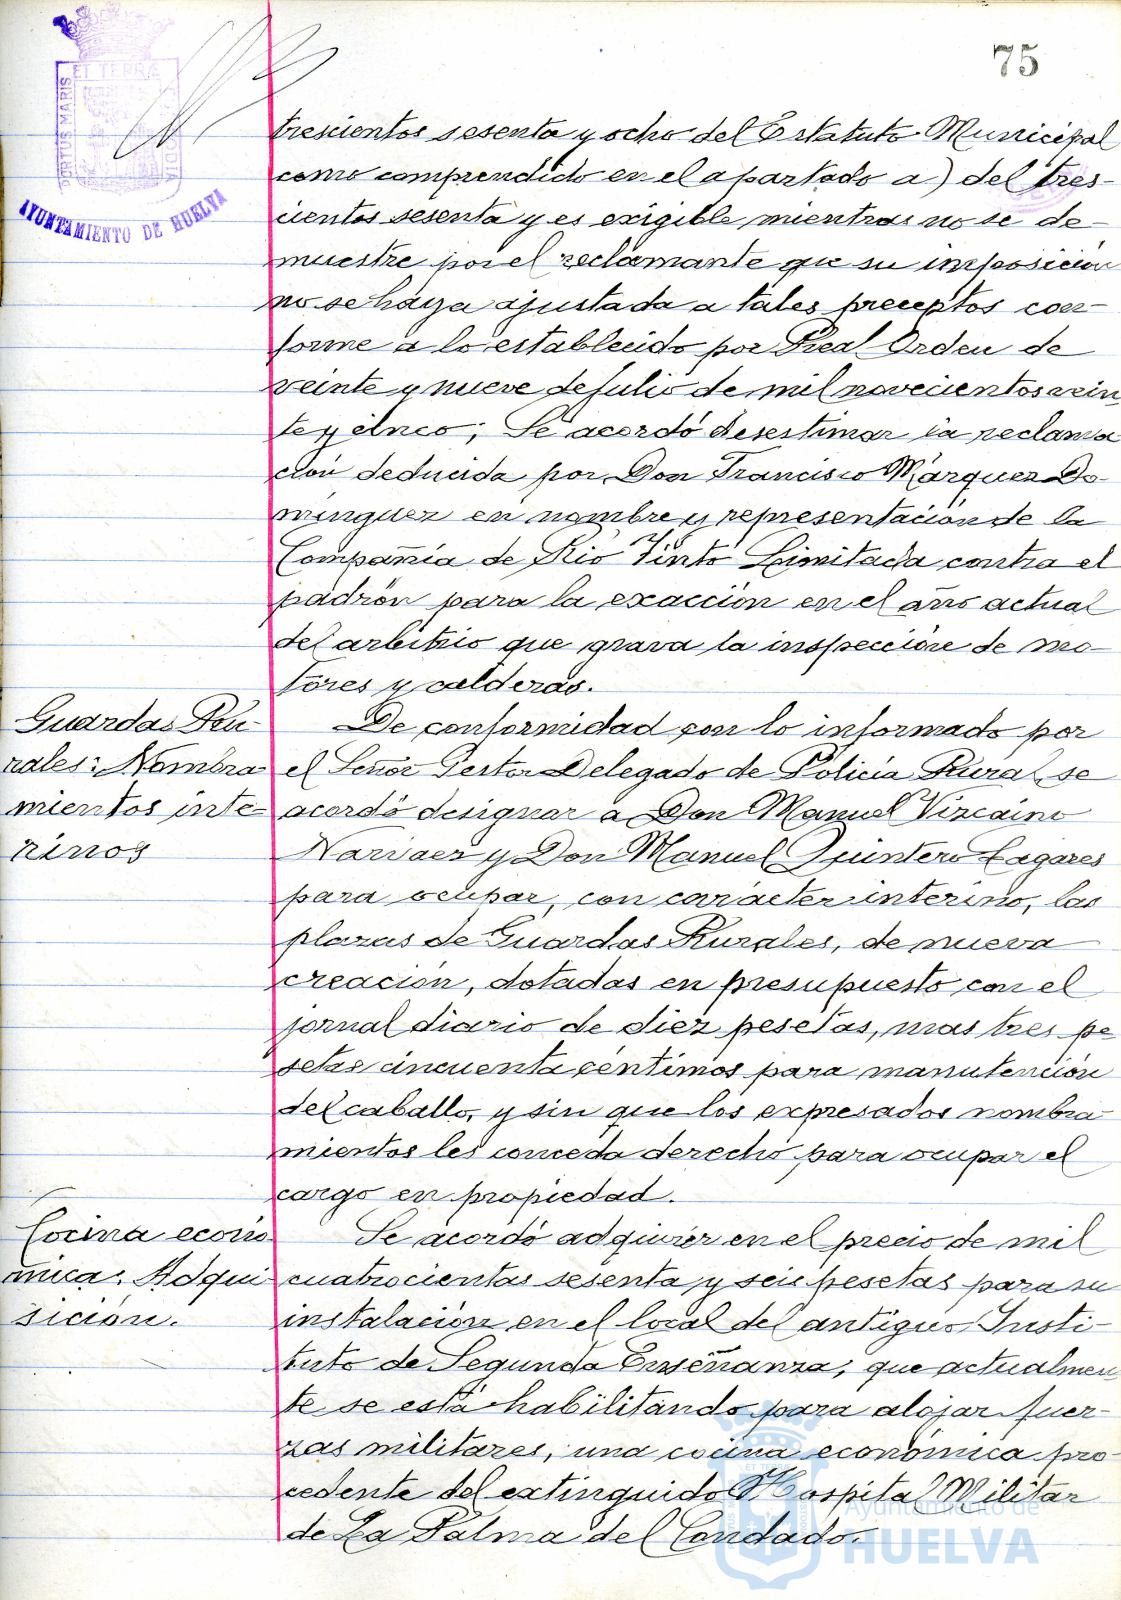 75
PORTUS MARIS ET TERRÆ CUSTODIA
AYUNTAMIENTO DE HUELVA
trescientos sesenta y ocho del Estatuto Municipal
como comprendido en el apartado a) del tres-
cientos sesenta y es exigible mientras no se de-
muestre por el reclamante que su imposición
no se haya ajustada a tales preceptos con-
forme a lo establecido por Real Orden de
veinte y nueve de Julio de mil novecientos vein
te y cinco; Se acordó desestimar la reclama
ción deducida por Don Francisco Márquez Do-
minguez en nombre y representación de la
Compañía de Rio Tinto Limitada contra el
padrón para la exacción en el año actual
del arbitrio que grava la inspección de mo-
tores y calderas.
Guardas Ru-
rales: Nombra
mientos inte-
rinos
De conformidad con lo informado por
el Señor Gestor Delegado de Policía Rural, se
acordó designar a Don Manuel Vizcaino
Narvaez y Don Manuel Quintero Lagares
para ocupar, con carácter interino, las
plazas de Guardas Rurales, de nueva
creación, dotadas en presupuesto con el
jornal diario de diez pesetas, mas tres pe-
setas cincuenta céntimos para manutención
del caballo, y sin que los expresados nombra-
mientos les conceda derecho para ocupar el
cargo en propiedad.
Cocina econó
mica. Adqui
sición.
Se acordó adquirir en el precio de mil
cuatrocientas sesenta y seis pesetas para su
instalación en el local del antiguo Insti-
tuto de Segunda Enseñanza, que actualmen
te se está habilitando para alojar fuer-
zas militares, una cocina económica pro-
cedente del extinguido Hospital Militar
de La Palma del Condado.
Ayuntamiento de
HUELVA